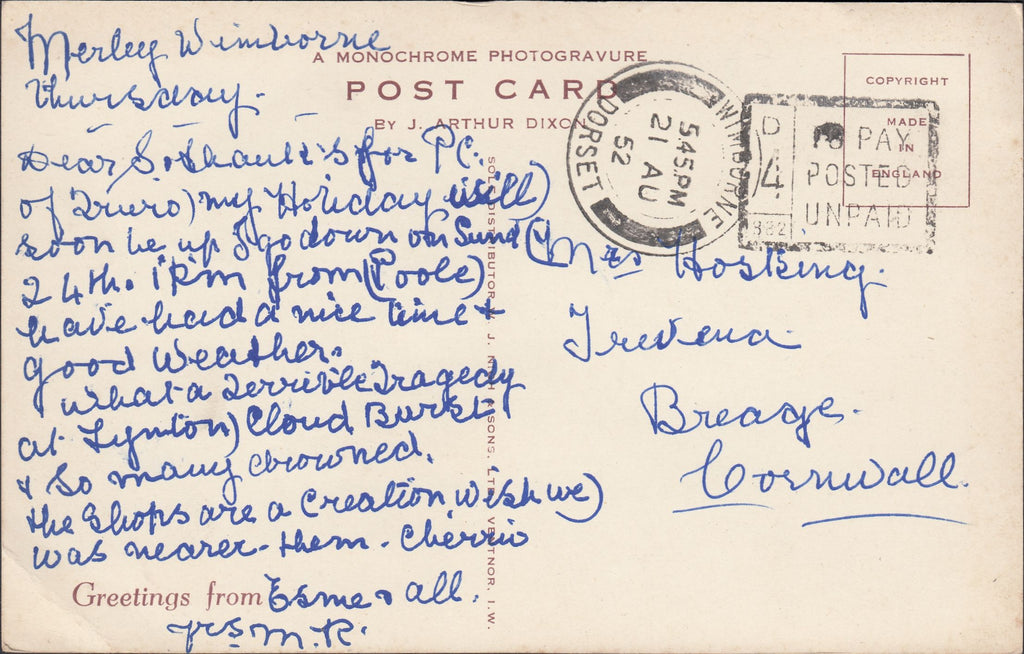 Merley Wimborne
Thursday.
A MONOCHROME PHOTOGRAVURE
POST CARD
BY J. ARTHUR DIXON
Dear S. thanks for P.C.
of Truro) my Holiday will)
soon be up I go down on Sund (y
24th. 1 P.m from (Poole)
have had a nice time &
good weather.
what a Terrible Tragedy
at Lynton) Cloud Burst
& so many drowned.
the Shops are a Creation, wish we)
was nearer them. Cherrio
Greetings from Esme & all.
yrs M.R.
SOLE DISTRIBUTOR W. J. SONS, LTD. VENTNOR, I.W.
WIMBORNE
545PM
21 AU
52
DORSET
D
4
832
TO PAY
POSTED
UNPAID
COPYRIGHT
MADE
IN
ENGLAND
Mrs Hosking.
Trevena
Breage.
Cornwall.